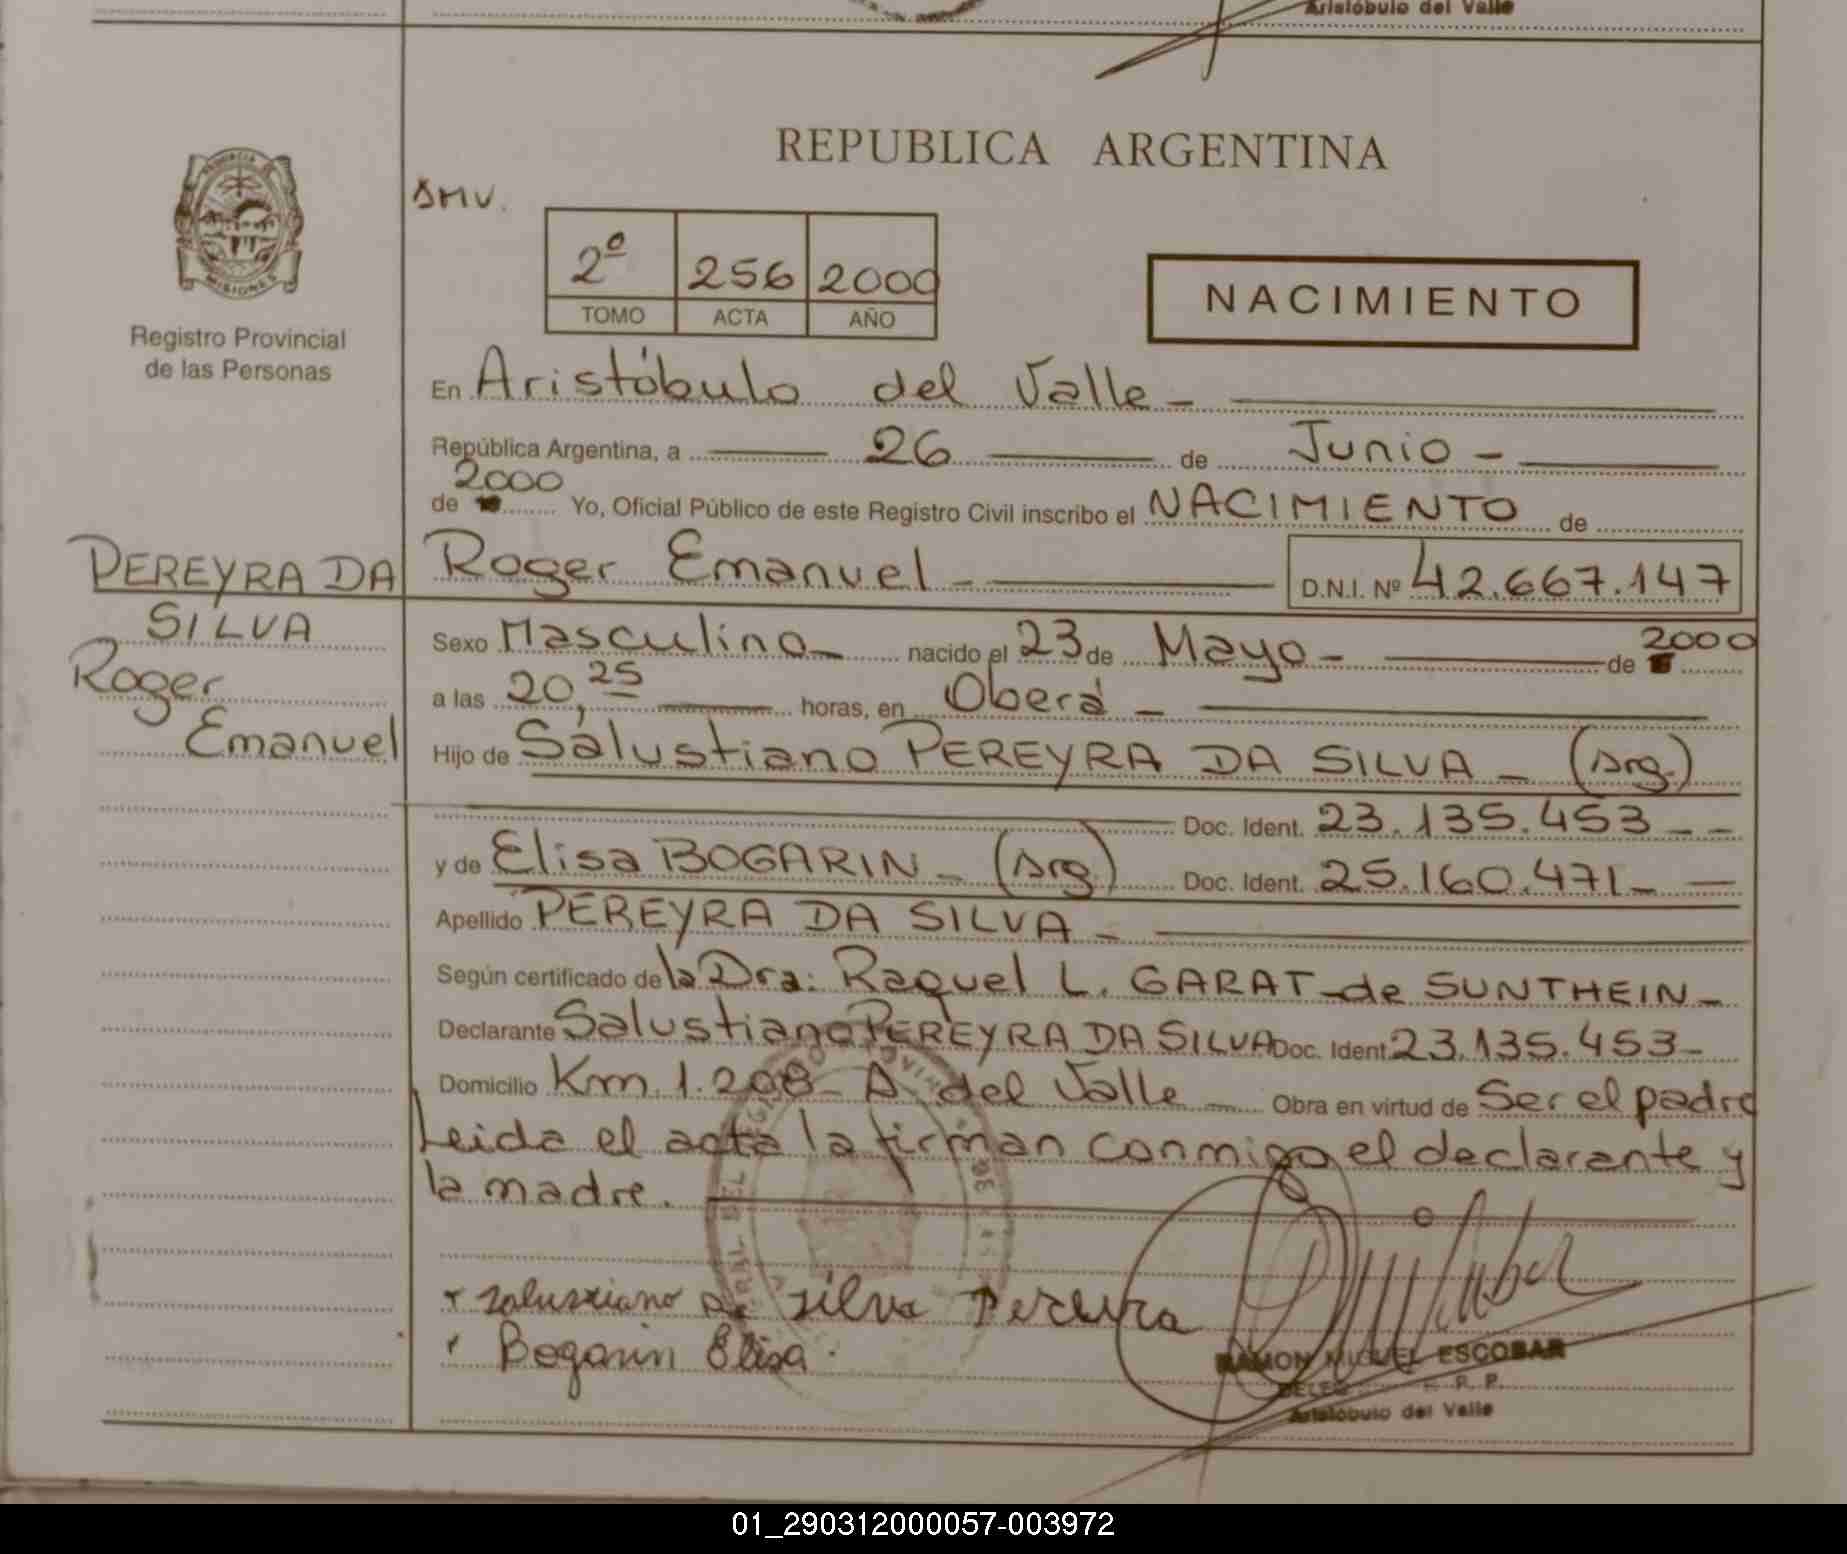 Aristóbulo del Valle
REPUBLICA ARGENTINA
PROVINCIA DE
MISIONES
Registro Provincial
de las Personas
SMV.
2º 256 2000
TOMO ACTA AÑO
NACIMIENTO
En Aristóbulo del Valle -
República Argentina, a 26 de Junio -
de 2000 Yo, Oficial Público de este Registro Civil inscribo el NACIMIENTO de
Roger Emanuel - D.N.I. Nº 42.667.147
PEREYRA DA
SILVA
Roger
Emanuel
Sexo Masculino - nacido el 23 de Mayo - de 2000
a las 20,25 horas, en Oberá -
Hijo de Salustiano PEREYRA DA SILVA - (arg.)
Doc. Ident. 23.135.453 - -
y de Elisa BOGARIN - (arg) Doc. Ident. 25.160.471 - -
Apellido PEREYRA DA SILVA -
Según certificado de la Dra: Raquel L. GARAT de SUNTHEIN -
Declarante Salustiano PEREYRA DA SILVA Doc. Ident. 23.135.453 -
Domicilio Km. 1.208 - A. del Valle - Obra en virtud de Ser el padre
Leida el acta la firman conmigo el declarante y
la madre.
Salustiano Da silva Pereyra
Bogarin Elisa.
RAMON MIGUEL ESCOBAR
R. P.
Aristóbulo del Valle
01_290312000057-003972